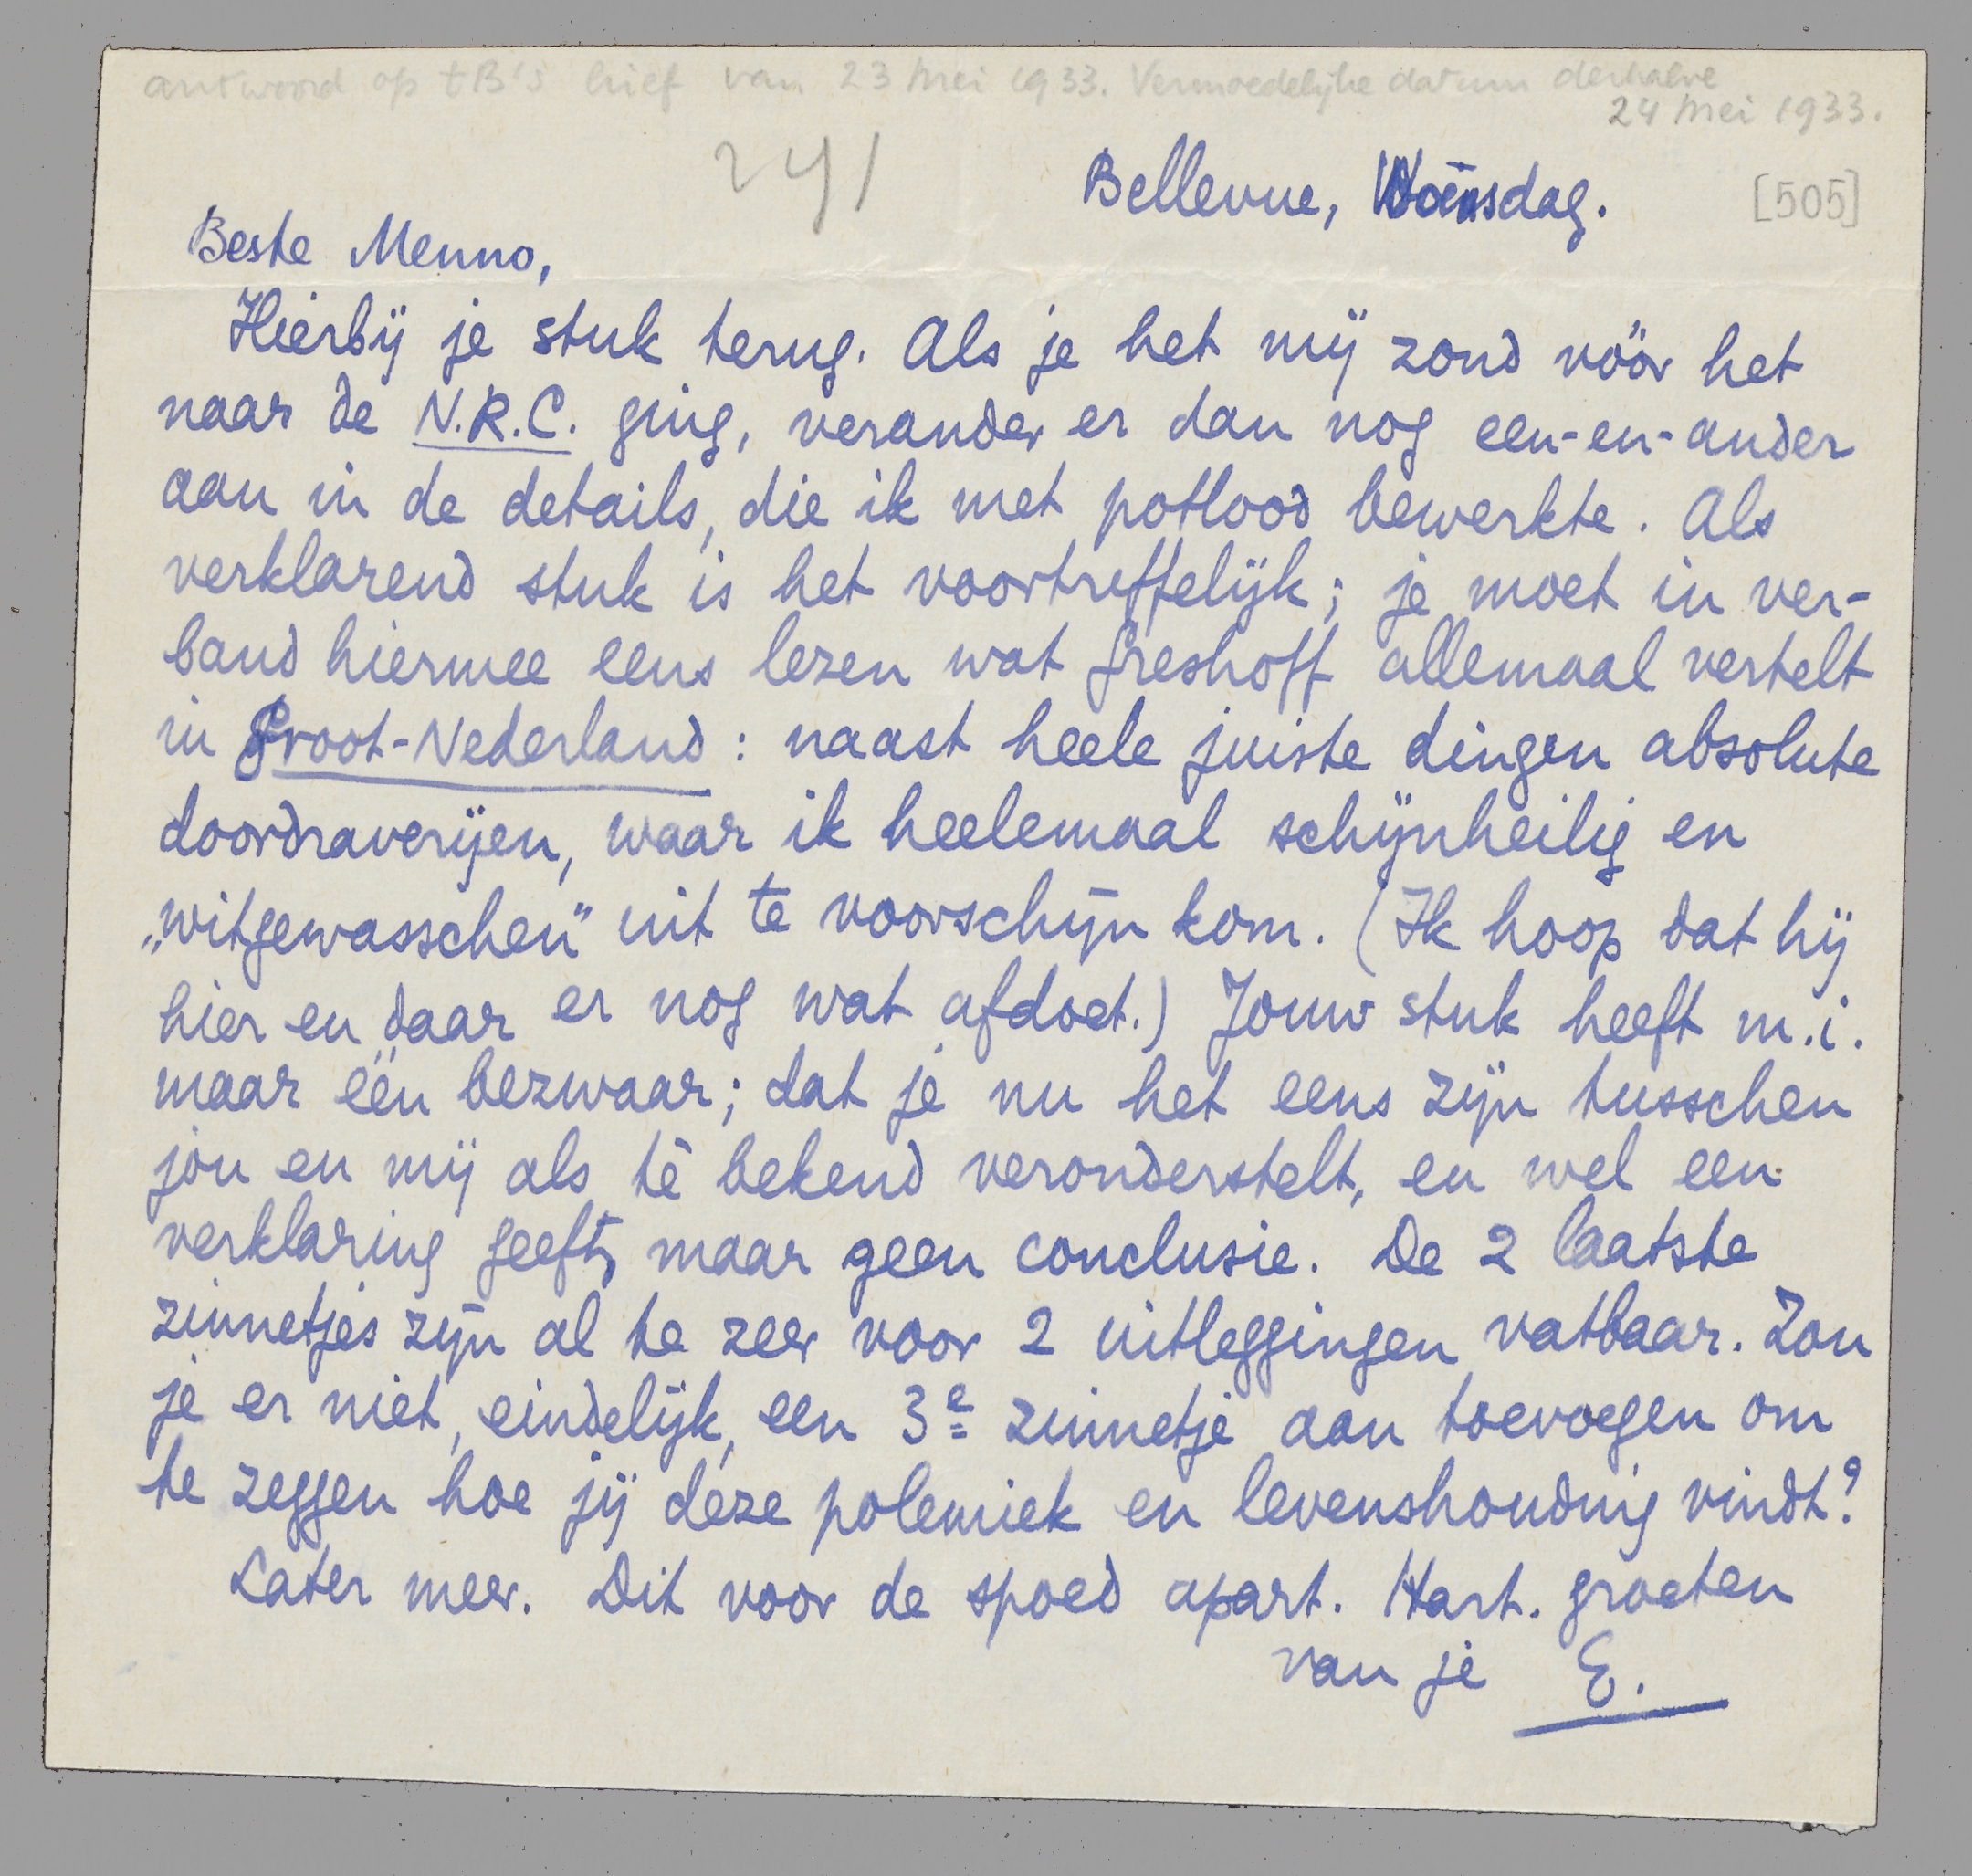 antwoord op tB's brief van 23 Mei 1933. Vermoedelijke datum derhalve
24 Mei 1933.
241
Bellevue, Woensdag.
[505]
Beste Menno,
Hierbij je stuk terug. Als je het mij zond vóór het
naar de N.R.C. ging, verander er dan nog een-en-ander
aan in de details, die ik met potlood bewerkte. Als
verklarend stuk is het voortreffelijk; je moet in ver-
band hiermee eens lezen wat Greshoff allemaal vertelt
in Groot-Nederland: naast heele juiste dingen absolute
doordraverijen, waar ik heelemaal schijnheilig en
„witgewasschen" uit te voorschijn kom. (Ik hoop dat hij
hier en daar er nog wat afdoet.) Jouw stuk heeft m.i.
maar één bezwaar; dat je nu het eens zijn tusschen
jou en mij als té bekend veronderstelt, en wel een
verklaring geeft, maar geen conclusie. De 2 laatste
zinnetjes zijn al te zeer voor 2 uitleggingen vatbaar. Zou
je er niet, eindelijk, een 3e zinnetje aan toevoegen om
te zeggen hoe jij deze polemiek en levenshouding vindt?
Later meer. Dit voor de spoed apart. Hart. groeten
van je E.